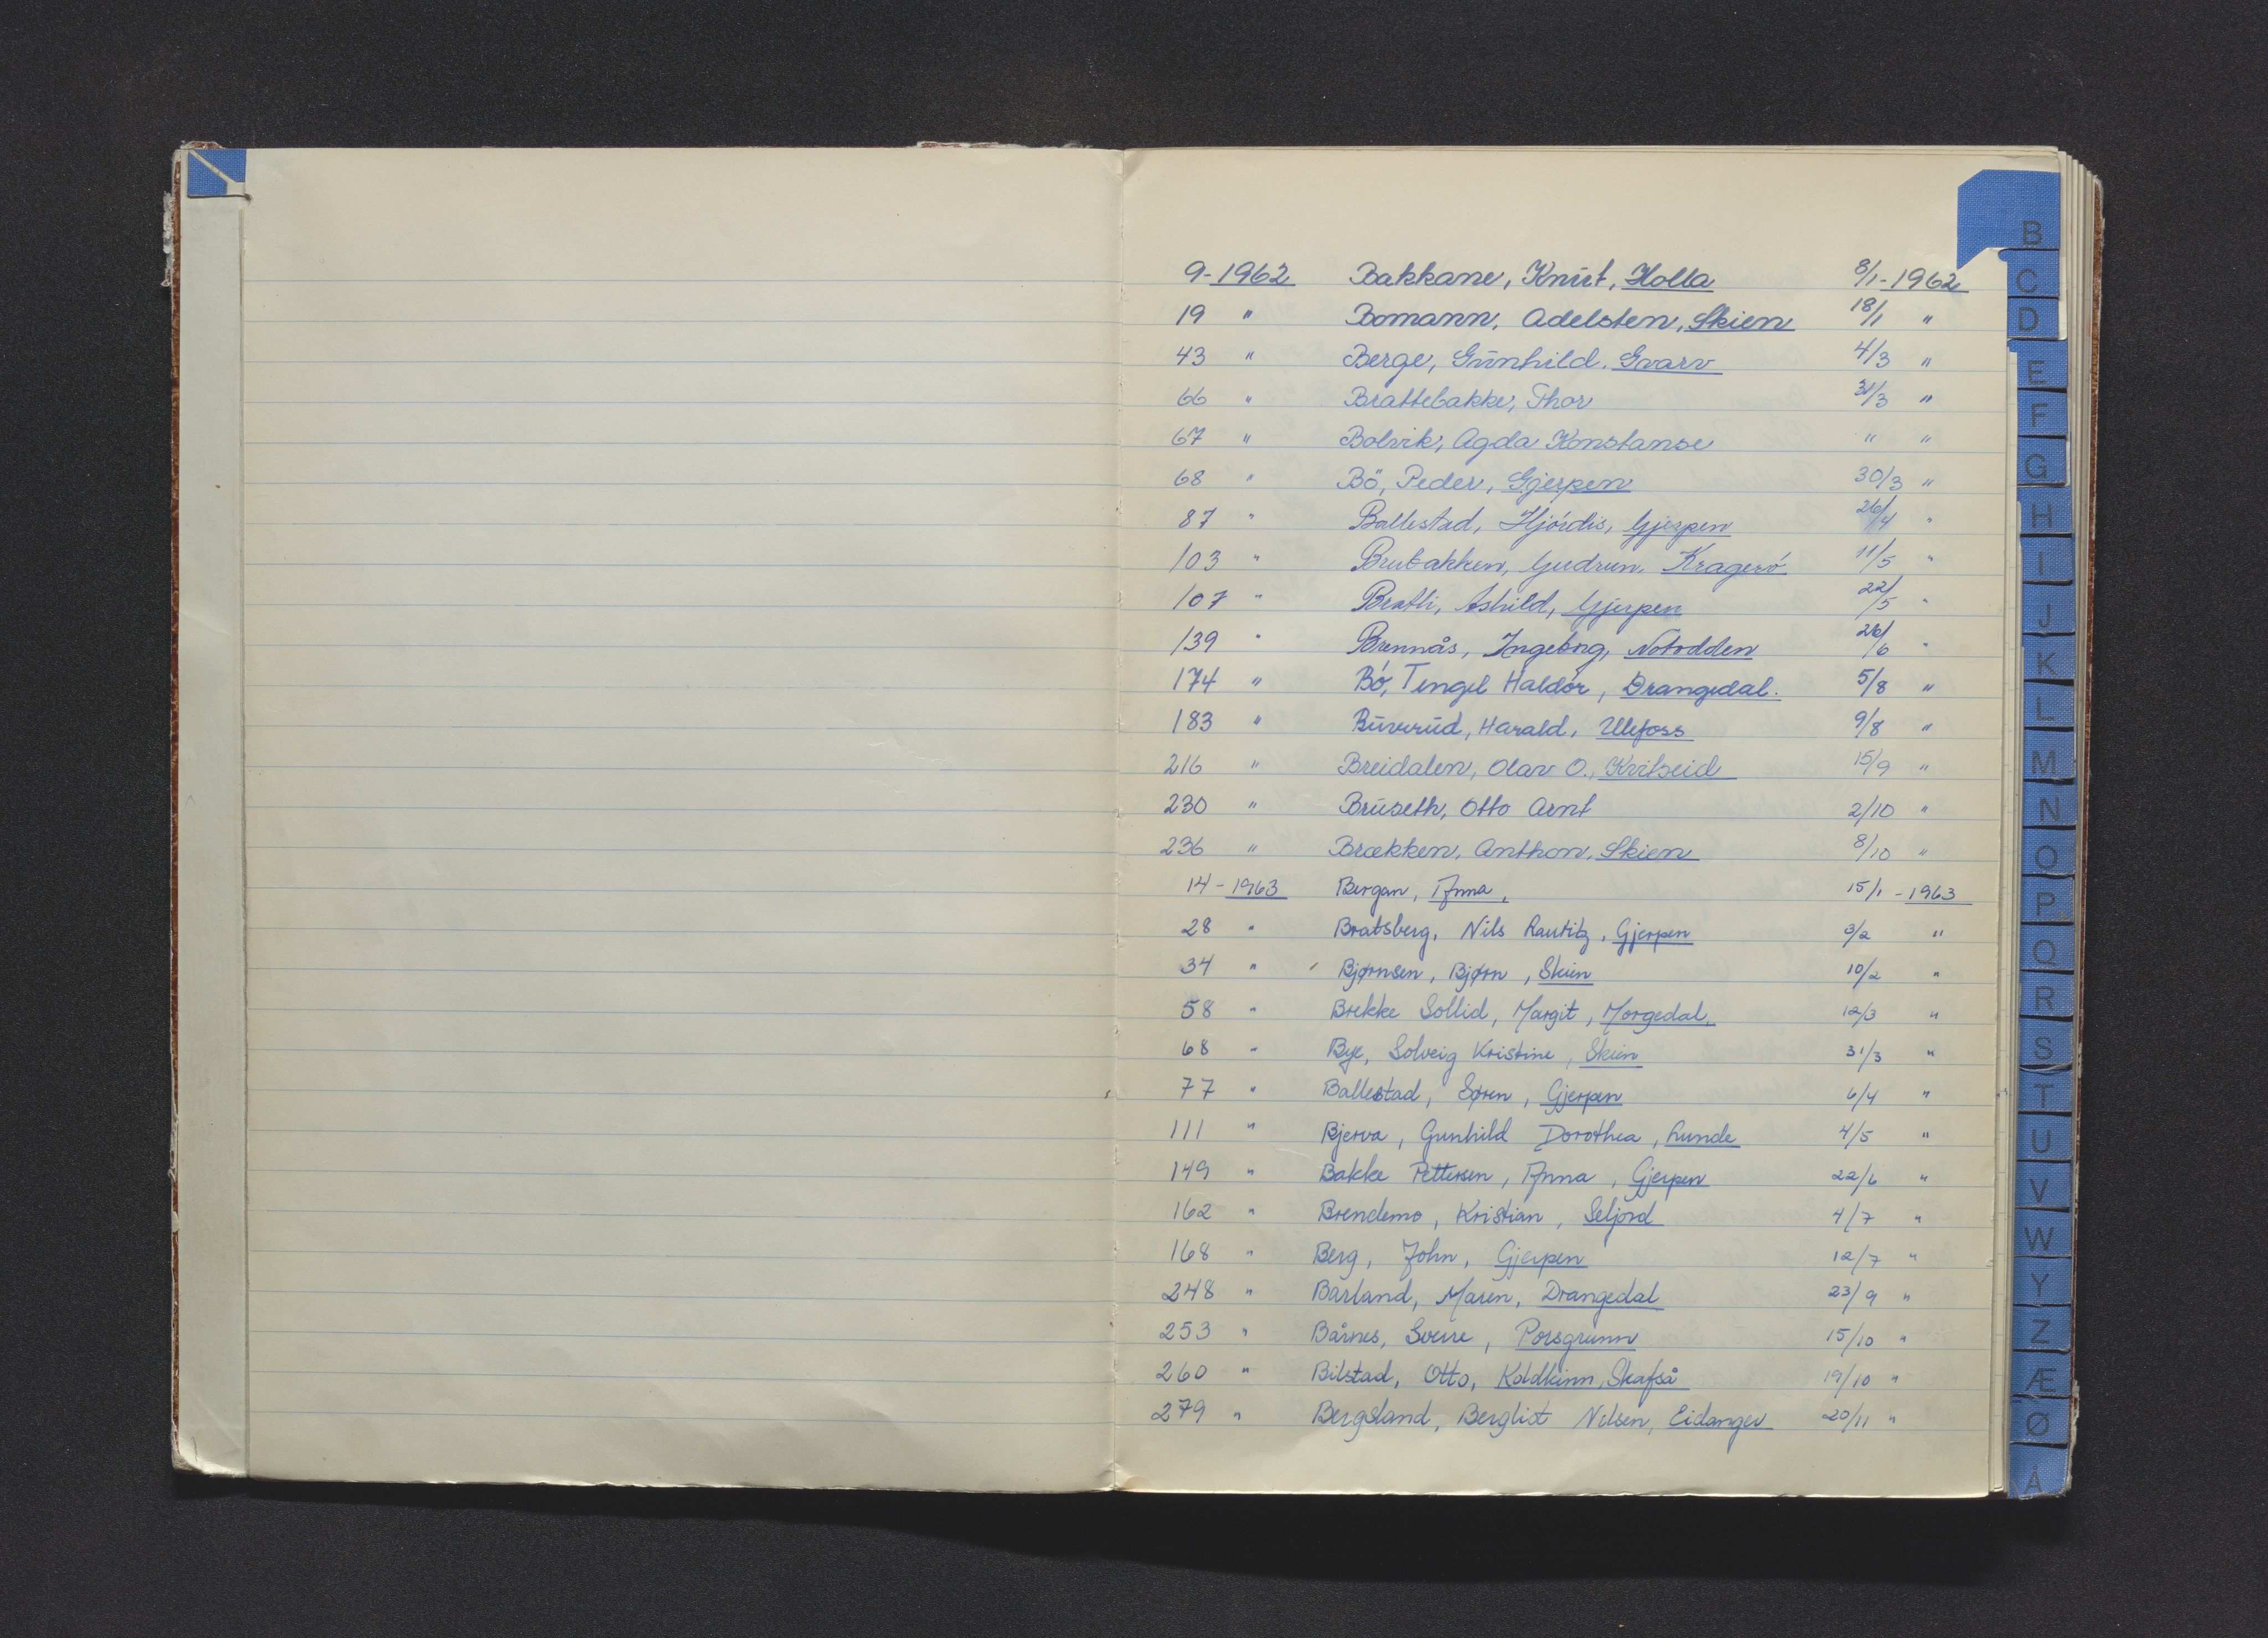 9-1962 Bakkane, Knut, Holla 8/1-1962
19 " Bomann, Adelsten, Skien 18/1 "
43 " Berge, Gunhild. Gvarv 4/3 "
66 " Brattebakke, Thor 31/3 "
67 " Bolvik, Agda Konstanse " "
68 " Bö, Peder, Gjerpen 30/3 "
87 " Ballestad, Hjördis, Gjerpen 26/4 "
103 " Brubakken, Gudrun, Kragerö 11/5 "
107 " Bratli, Ashild, Gjerpen 22/5 "
139 " Brennås, Ingeborg, Notodden 26/6 "
174 " Bö, Tengel Haldor, Drangedal. 5/8 "
183 " Buverud, Harald, Ulefoss 9/8 "
216 " Breidalen, Olav O., Kvitseid 15/9 "
230 " Bruseth, Otto Arnt 2/10 "
236 " Brækken, Anthon, Skien 8/10 "
14-1963 Bergan, Anna, 15/1-1963
28 " Bratsberg, Nils Rautitz, Gjerpen 9/2 "
34 " Bjørnsen, Bjørn, Skien 10/2 "
58 " Brekke Sollid, Margit, Morgedal. 12/3 "
68 " Bye, Solveig Kristine, Skien 31/3 "
77 " Ballestad, Søren, Gjerpen 6/4 "
111 " Bjerva, Gunhild Dorothea, Lunde 4/5 "
149 " Bakke Pettersen, Anna, Gjerpen 22/6 "
162 " Brendemo, Kristian, Seljord 4/7 "
168 " Berg, John, Gjerpen 12/7 "
248 " Barland, Maren, Drangedal 23/9 "
253 " Bårnes, Sverre, Porsgrunn 15/10 "
260 " Bilstad, Otto, Koldkinn, Skafså 19/10 "
279 " Bergsland, Bergliot Nilsen, Eidanger 20/11 "
B
C
D
E
F
G
H
I
J
K
L
M
N
O
P
Q
R
S
T
U
V
W
Y
Z
Æ
Ø
Å